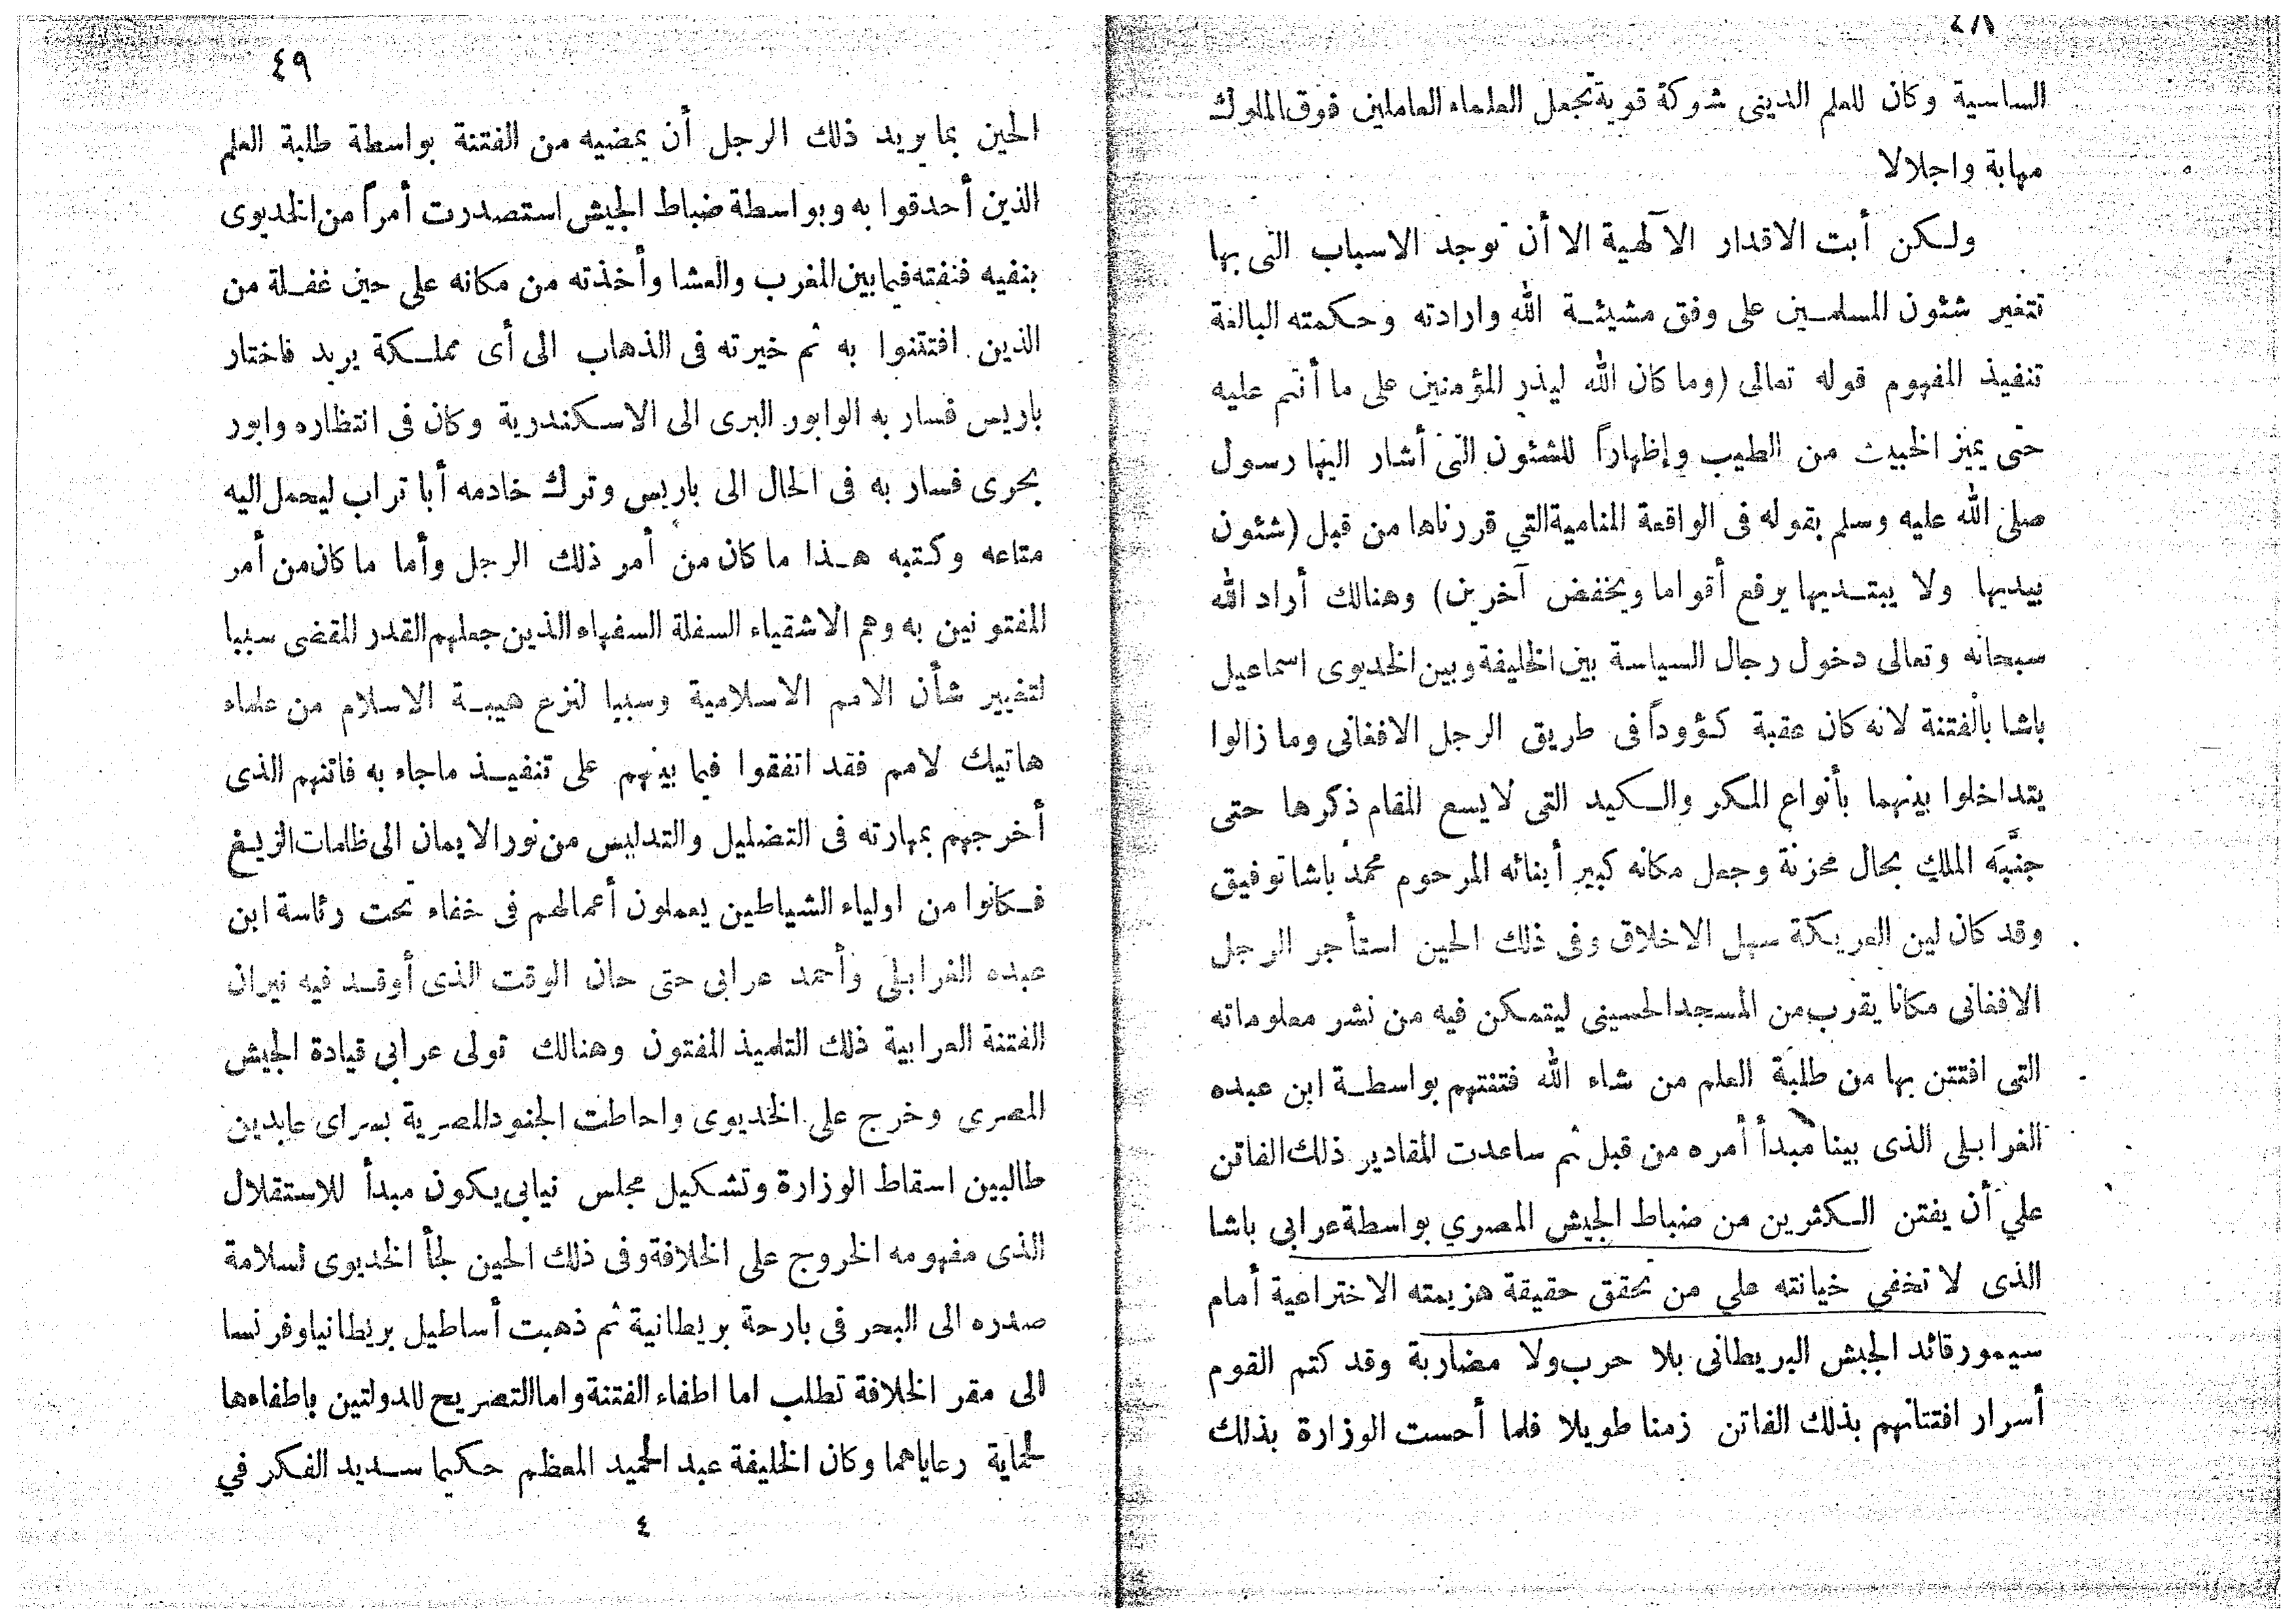 ٤٨
الساسية وكان للعلم الدينى شوكة قوية تجعل العلماء العاملين فوق الملوك
مهابة واجلالا
ولكن أبت الاقدار الآلهية الا أن توجد الاسباب التى بها
تتغير شئون المسلمين على وفق مشيئة الله وارادته وحكمته البالغة
تنفيذ المفهوم قوله تعالى (وما كان الله ليذر المؤمنين على ما أنتم عليه
حتى يميز الخبيث من الطيب وإظهاراً للشئون التى أشار اليها رسول
صلى الله عليه وسلم بقوله فى الواقعة المنامية التي قررناها من قبل (شئون
يبديها ولا يبتديها يرفع أقواما ويخفض آخرين) وهنالك أراد الله
سبحانه وتعالى دخول رجال السياسة بين الخليفة وبين الخديوى اسماعيل
باشا بالفتنة لانه كان عقبة كؤوداً فى طريق الرجل الافغانى وما زالوا
يتداخلوا بينهما بأنواع المكر والكيد التى لا يسع المقام ذكرها حتى
جنبَّه الملك بحال محزنة وجعل مكانه كبير أبنائه المرحوم محمد باشا توفيق
وقد كان لين العريكة سهل الاخلاق وفى ذلك الحين استأجر الرجل
الافغانى مكانا يقرب من المسجد الحسينى ليتمكن فيه من نشر معلوماته
التى افتتن بها من طلبة العلم من شاء الله فتفتهم بواسطة ابن عبده
الغرابلى الذى بينا مبدأ أمره من قبل ثم ساعدت المقادير ذلك الفاتن
علي أن يفتن الكثرين من ضباط الجيش المصري بواسطة عرابى باشا
الذى لا تخفي خيانته علي من تحقق حقيقة هزيمته الاختراعية أمام
سيمور قائد الجيش البريطانى بلا حرب ولا مضاربة وقد كتم القوم
أسرار افتتانهم بذلك الفاتن زمنا طويلا فلما أحست الوزارة بذلك
٤٩
الحين بما يريد ذلك الرجل أن يمضيه من الفتنة بواسطة طلبة العلم
الذين أحدقوا به وبواسطة ضباط الجيش استصدرت أمراً من الخديوى
بنفيه فنفته فيما بين المغرب والعشا وأخذته من مكانه على حين غفلة من
الذين افتتنوا به ثم خيرته فى الذهاب الى أى مملكة يريد فاختار
باريس فسار به الوابور البرى الى الاسكندرية وكان فى انتظاره وابور
بحرى فسار به فى الحال الى باريس وترك خادمه أبا تراب ليحمل اليه
متاعه وكتبه هذا ما كان من أمر ذلك الرجل وأما ما كان من أمر
المفتونين به وهم الاشقياء السفلة السفهاء الذين جعلهم القدر المقضى سببا
لتغيير شأن الامم الاسلامية وسببا لنزع هيبة الاسلام من علماء
هاتيك لامم فقد اتفقوا فيما بينهم على تنفيذ ما جاء به فاتنهم الذى
أخرجهم بمهارته فى التضليل والتدليس من نور الايمان الى ظلمات الزيغ
فكانوا من اولياء الشياطين يعملون أعمالهم فى خفاء تحت رئاسة ابن
عبده الغرابلى وأحمد عرابى حتى حان الوقت الذى أوقد فيه نيران
الفتنة العرابية ذلك التلميذ المفتون وهنالك تولى عرابى قيادة الجيش
المصرى وخرج على الخديوى واحاطت الجنود المصرية بسراى عابدين
طالبين اسقاط الوزارة وتشكيل مجلس نيابى يكون مبدأ للاستقلال
الذى مفهومه الخروج على الخلافة وفى ذلك الحين لجأ الخديوى لسلامة
صدره الى البحر فى بارحة بريطانية ثم ذهبت أساطيل بريطانيا وفرنسا
الى مقر الخلافة تطلب اما اطفاء الفتنة واما التصريح للدولتين باطفاءها
لحماية رعاياهما وكان الخليفة عبد الحميد المعظم حكيما سديد الفكر في
٤